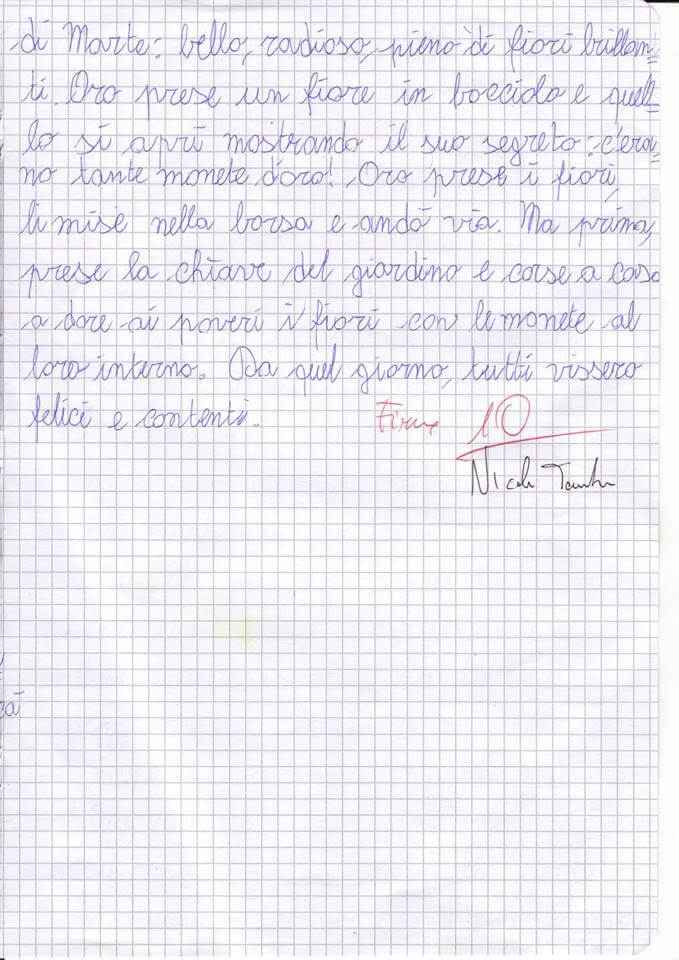 di Marte: bello, radioso, pieno di fiori brillan=
ti. Oro prese un fiore in bocciolo e quel=
lo si aprì mostrando il suo segreto: c'era=
no tante monete d'oro! Oro prese i fiori,
li mise nella borsa e andò via. Ma prima,
prese la chiave del giardino e corse a casa
a dare ai poveri i fiori con le monete al
loro interno. Da quel giorno, tutti vissero
felici e contenti.
10